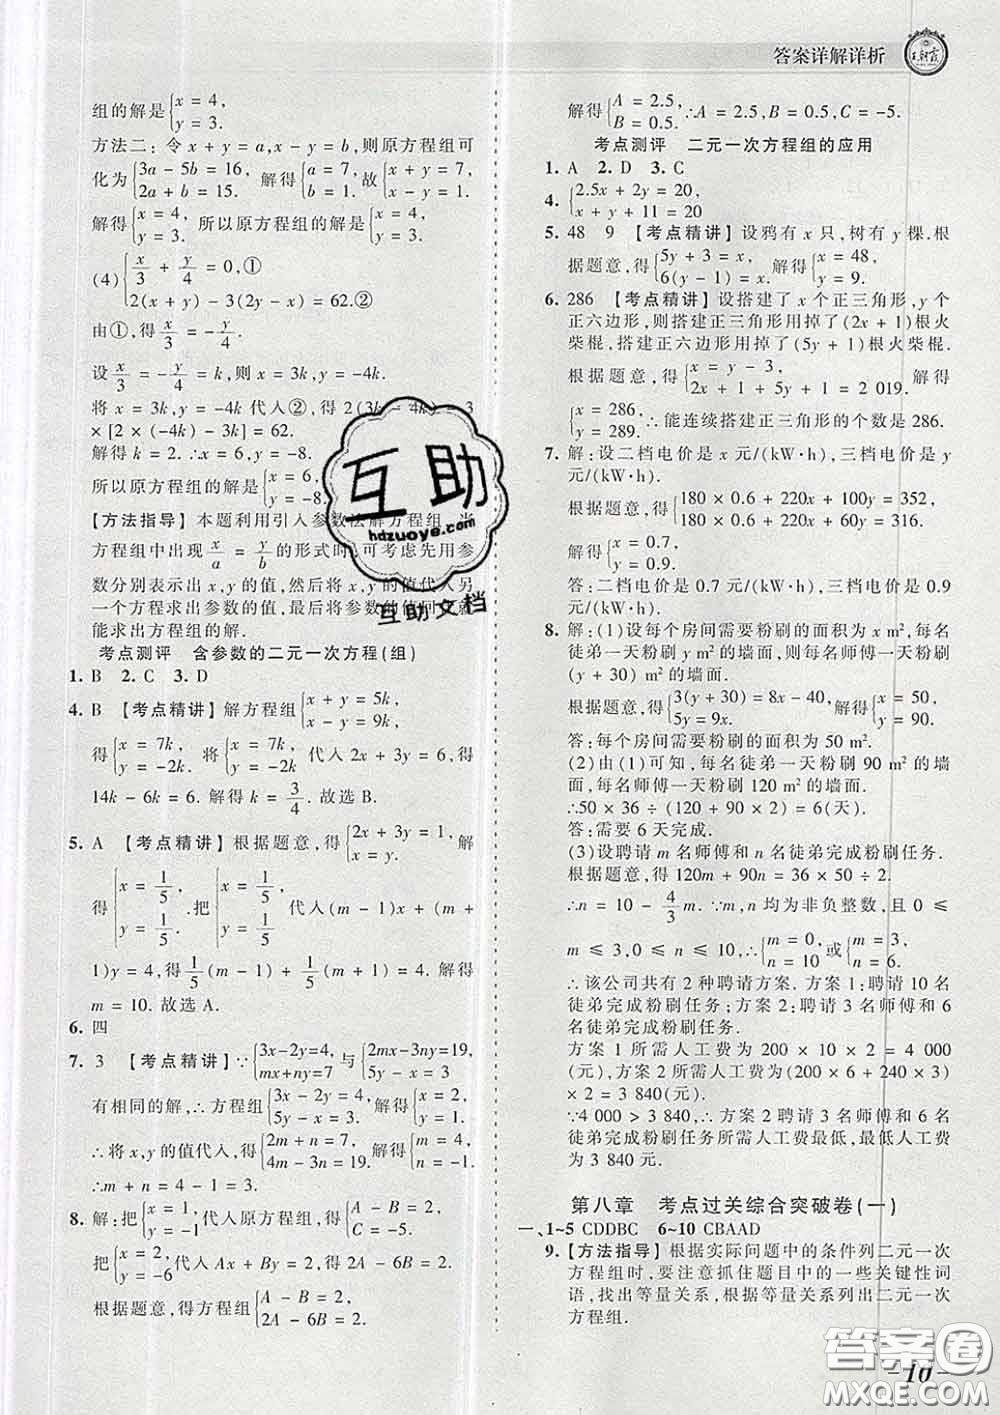 答案详解详析
王朝霞
组的解是{x = 4, y = 3.
方法二：令 x + y = a, x - y = b, 则原方程组可
化为{3a - 5b = 16, 2a + b = 15. 解得{a = 7, b = 1. 故{x + y = 7, x - y = 1.
解得{x = 4, y = 3. 所以原方程组的解是{x = 4, y = 3.
(4){x/3 + y/4 = 0,① 2(x - y) - 3(2y + x) = 62.②
由①,得 x/3 = - y/4.
设 x/3 = - y/4 = k,则 x = 3k,y = -4k.
将 x = 3k,y = -4k 代入②,得 2(3k - 4k) - 3
× [2 × (-4k) - 3k] = 62.
解得 k = 2. ∴ x = 6,y = -8.
所以原方程组的解是{x = 6, y = -8.
【方法指导】本题利用引入参数法解方程组,当
方程组中出现 x/a = y/b 的形式时,可考虑先用参
数分别表示出 x,y 的值,然后将 x,y 的值代入另
一个方程求出参数的值,最后将参数的值回代就
能求出方程组的解.
考点测评 含参数的二元一次方程(组)
1. B 2. C 3. D
4. B 【考点精讲】解方程组{x + y = 5k, x - y = 9k,
得{x = 7k, y = -2k. 将{x = 7k, y = -2k 代入 2x + 3y = 6,得
14k - 6k = 6. 解得 k = 3/4. 故选 B.
5. A 【考点精讲】根据题意,得{2x + 3y = 1, x = y. 解
得{x = 1/5, y = 1/5. 把{x = 1/5, y = 1/5 代入(m - 1)x + (m +
1)y = 4,得 1/5(m - 1) + 1/5(m + 1) = 4. 解得
m = 10. 故选 A.
6. 四
7. 3 【考点精讲】∵{3x-2y=4, mx+ny=7 与{2mx-3ny=19, 5y-x=3
有相同的解,∴方程组{3x - 2y = 4, 5y - x = 3. 解得{x = 2, y = 1.
∴将 x,y 的值代入,得{2m + n = 7, 4m - 3n = 19. 解得{m = 4, n = -1.
∴m + n = 4 - 1 = 3.
8. 解:把{x = 1, y = -1 代入原方程组,得{A - B = 2, C = -5.
把{x = 2, y = -6 代入 Ax + By = 2,得 2A - 6B = 2.
根据题意,得方程组{A - B = 2, 2A - 6B = 2.
解得{A = 2.5, B = 0.5. ∴A = 2.5,B = 0.5,C = -5.
考点测评 二元一次方程组的应用
1. A 2. D 3. C
4. {2.5x + 2y = 20, x + y + 11 = 20
5. 48 9 【考点精讲】设鸦有 x 只,树有 y 棵. 根
据题意,得{5y + 3 = x, 6(y - 1) = x. 解得{x = 48, y = 9.
6. 286 【考点精讲】设搭建了 x 个正三角形,y 个
正六边形,则搭建正三角形用掉了(2x + 1)根火
柴棍,搭建正六边形用掉了(5y + 1)根火柴棍.
根据题意,得{x = y - 3, 2x + 1 + 5y + 1 = 2 019. 解得
{x = 286, y = 289. ∴能连续搭建正三角形的个数是 286.
7. 解:设二档电价是 x 元/(kW·h),三档电价是 y
元/(kW·h).
根据题意,得{180 × 0.6 + 220x + 100y = 352, 180 × 0.6 + 220x + 60y = 316.
解得{x = 0.7, y = 0.9.
答:二档电价是 0.7 元/(kW·h),三档电价是 0.9
元/(kW·h).
8. 解:(1)设每个房间需要粉刷的面积为 x m²,每名
徒弟一天粉刷 y m² 的墙面,则每名师傅一天粉刷
(y + 30) m² 的墙面.
根据题意,得{3(y + 30) = 8x - 40, 5y = 9x. 解得{x = 50, y = 90.
答:每个房间需要粉刷的面积为 50 m².
(2)由(1)可知,每名徒弟一天粉刷 90 m² 的墙
面,每名师傅一天粉刷 120 m² 的墙面.
∴50 × 36 ÷ (120 + 90 × 2) = 6(天).
答:需要 6 天完成.
(3)设聘请 m 名师傅和 n 名徒弟完成粉刷任务.
根据题意,得 120m + 90n = 50 × 36 ÷ 2.
∴n = 10 - 4/3 m. ∵m,n 均为非负整数,且 0 ≤
m ≤ 3,0 ≤ n ≤ 10,∴{m = 0, n = 10 或{m = 3, n = 6.
∴该公司共有 2 种聘请方案. 方案 1:聘请 10 名
徒弟完成粉刷任务;方案 2:聘请 3 名师傅和 6
名徒弟完成粉刷任务.
方案 1 所需人工费为 200 × 10 × 2 = 4 000
(元),方案 2 所需人工费为(200 × 6 + 240 × 3)
× 2 = 3 840(元).
∵4 000 > 3 840,∴方案 2 聘请 3 名师傅和 6 名
徒弟完成粉刷任务所需人工费最低,最低人工费
为 3 840 元.
第八章 考点过关综合突破卷(一)
一、1~5 CDDBC 6~10 CBAAD
9.【方法指导】根据实际问题中的条件列二元一次
方程组时,要注意抓住题目中的一些关键性词
语,找出等量关系,根据等量关系列出二元一次
方程组.
-10-
互助
hdzuoye.com
互助文档
答案圈
MXQE.COM